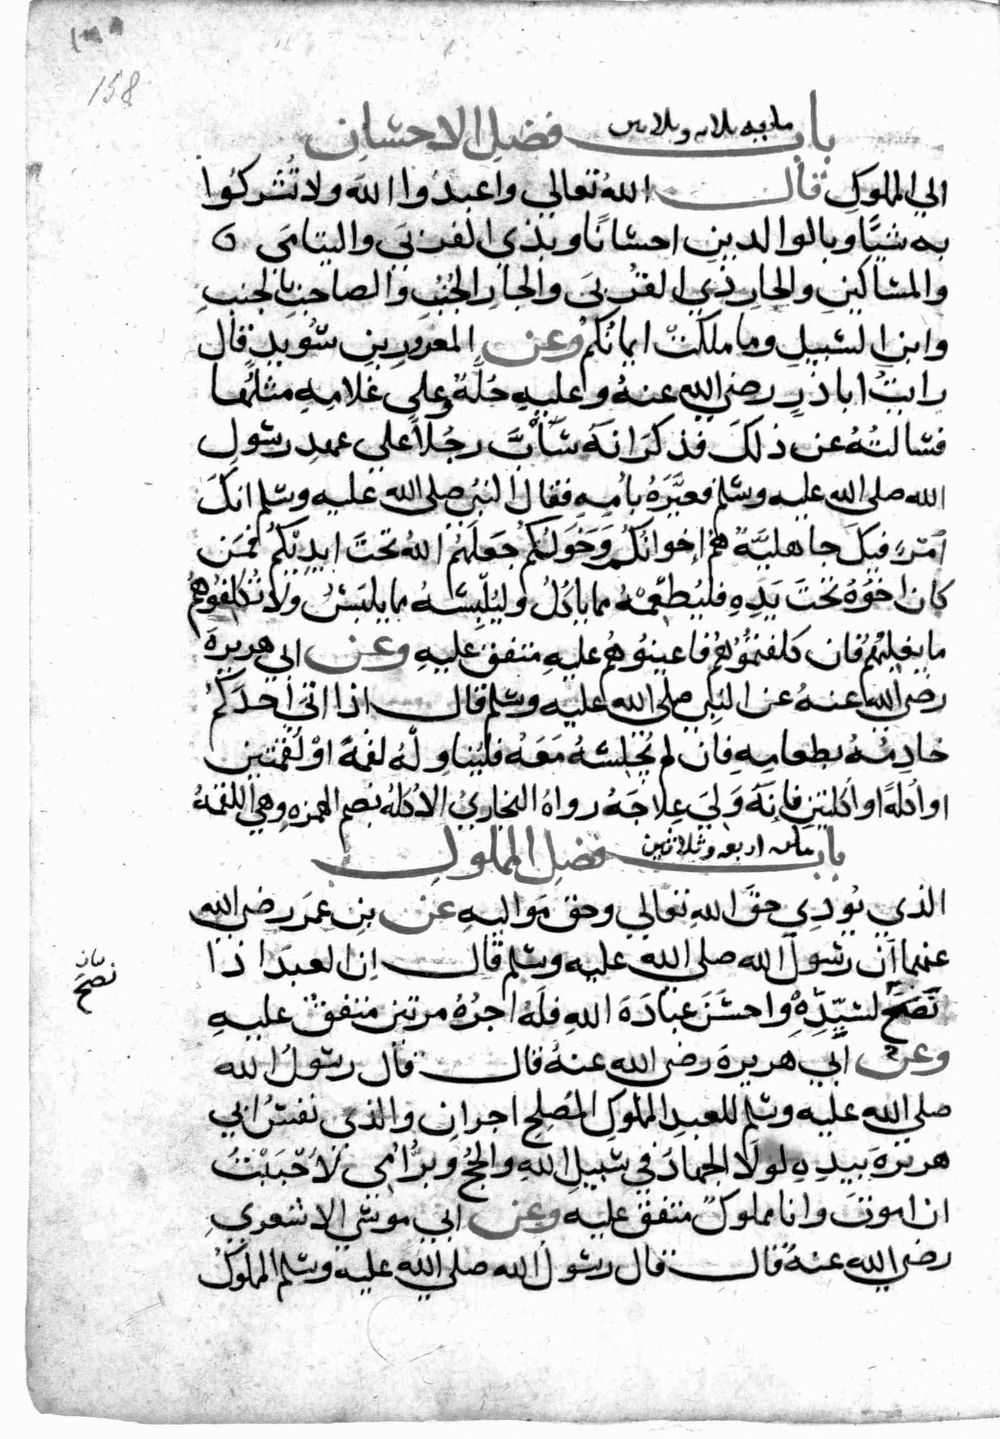 158
باب مايه ثلاثه وثلاثين فضل الاحسان
الي المملوك قال الله تعالي واعبدوا الله ولا تُشركُوا
به شيًا وبالوالدين احسانًا وبذي القربَي واليتامَي
والمساكين والجار ذي القُربَي والجار الجُنُبِ والصاحب بالجنبِ
وابن السبيل وما ملكت ايمانُكُم وعن المعرور بن سُويدٍ قال
رايتُ اباذرٍ رضي الله عنهُ وعليهِ حُلةٌ وعلي غلامِهِ مثلُها
فسالتُهُ عن ذلكَ فذكرَ انهَ سَابَّ رجُلاً علي عهدِ رسولِ
الله صلي الله عليه وسلم فعيَّرَهُ بامِهِ فقال النبيُ صلي الله عليه وسلم انكَ
امرؤٌ فيكَ جاهليَّةٌ هُم إخوانُكُم وَخَوَلُكُم جَعلَهُم الله تحتَ ايديكُم فمن
كان اخوُهُ تحتَ يَدِهِ فليُطعِمْهُ مما ياكُلُ وليُلبِسْهُ مما يلبَسُ ولا تُكلفُوهُم
ما يغلِبُهُم فان كلفتمُوُهُم فاعينوُهُم عليهِ متفق عليهِ وعن ابي هريرةَ
رضي الله عنهُ عن النبي صلي الله عليه وسلم قال اذا اتي احدَكُم
خادِمُهُ بطعامِهِ فان لم يُجلسْهُ مَعَهُ فليُناوِلْهُ لقمةً اوْ لُقمتين
او أُكلةً او أكلتين فإنهَ وَليَ عِلاجَهُ رواهُ البخاريُ الاُكلهُ بضم الهمزه وهي اللقمهُ
باب مايه اربعه وثلاثين فضل المملوك
الذي يُودِي حقَ اللهِ تعالي وحق مَواليهِ عن بن عمرَ رضي الله
عنهما أن رسولَ الله صلي الله عليه وسلم قال اِن العبدَ اذا
نَصَحَ لسيّدِهِ واحسَنَ عبادَةَ اللهِ فلهُ اجرُهُ مرتين متفق عليهِ
نصح
وعن ابي هريرةَ رضي الله عنهُ قال قال رسولُ الله
صلي الله عليه وسلم للعبدِ المملوكِ المُصلِح اجرانِ والذي نفسُ ابي
هريرةَ بيدِهِ لولا الجهادُ في سبيلِ اللهِ والحجُ وبرُّ امي لاَحْبَبْتُ
ان اموتَ وانا مملوكٌ متفق عليه وعن ابي موسَي الاشعري
رضي الله عنهُ قال قال رسولُ الله صلي الله عليه وسلم المملوكُ